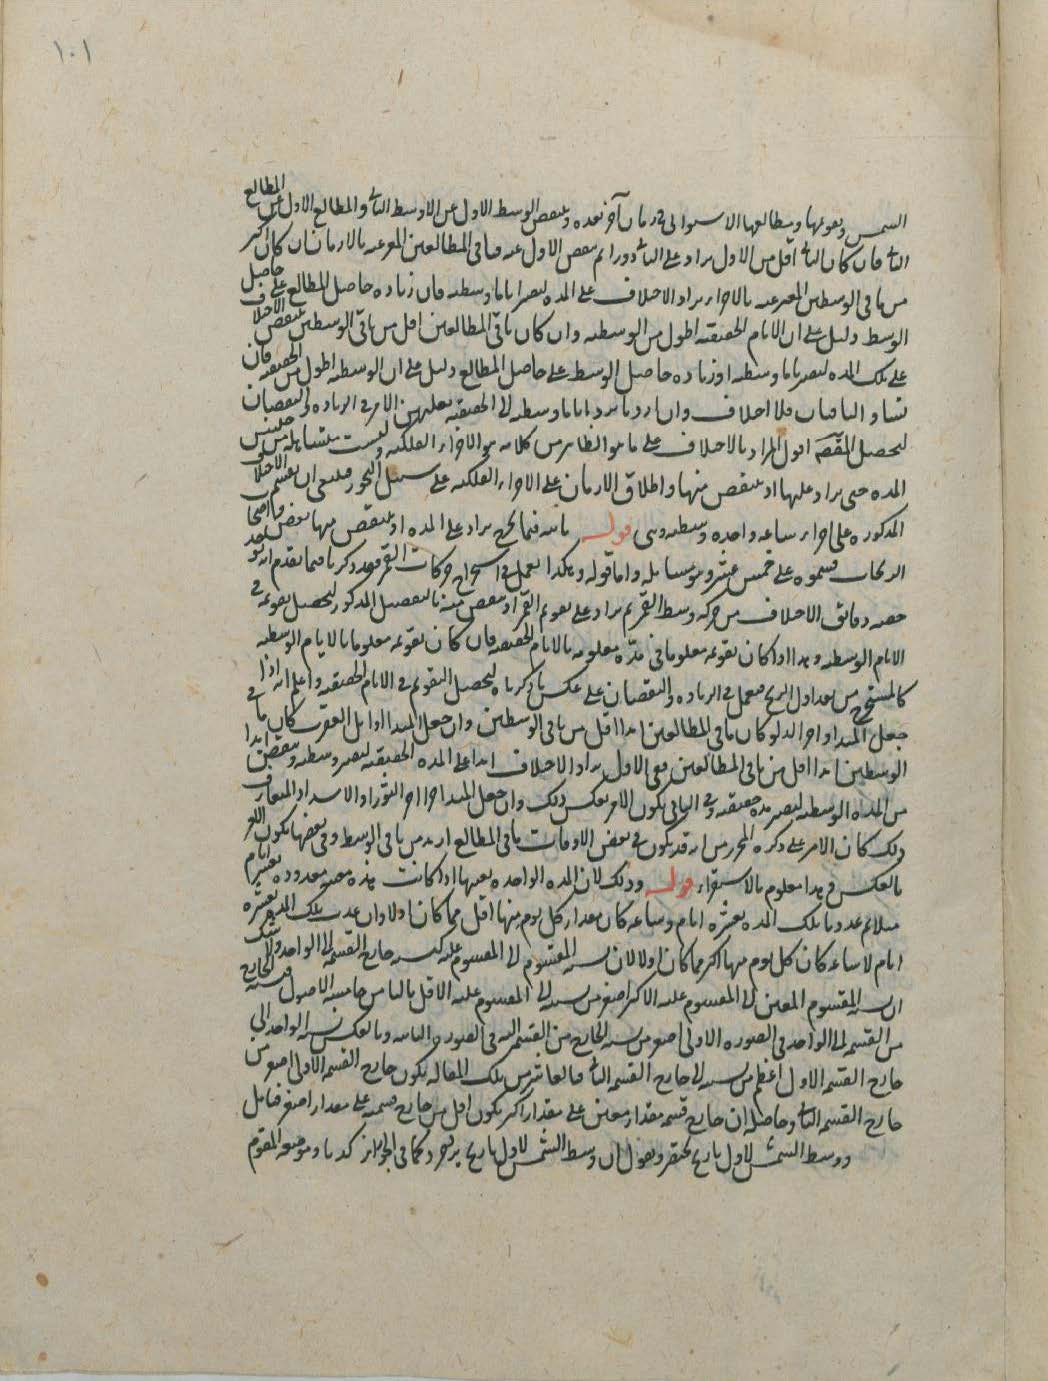 ١٠١
الشمس وتقويمها ومطالعها الاستوائى فى زمان آخر بعده وينقص الوسط الاول من الاوسط الثانى والمطالع الاول من المطالع
الثانى فان كان الثانى اقل من الاول يزاد على الثانى دورا ثم ينقص الاول عنه فباقى المطالعين المعبر عنه بالازمان ان كان اكثر
من باقى الوسطين المعبر عنه بالاجزاء يزاد الاختلاف على المدة ليصير اياما وسطية فان زيادة حاصل المطالع على حاصل
الوسط دليل على ان الايام الحقيقية اطول من الوسطية وان كان باقى المطالعين اقل من باقى الوسطين ينقص الاختلاف
على تلك المدة ليصير اياما وسطية اذ زيادة حاصل الوسط على حاصل المطالع دليل على ان الوسطية اطول من الحقيقية فان
تساوى الباقيان فلا اختلاف وان اردنا رد اياما وسطية الى الحقيقية بعكس الامر فى الزيادة والنقصان
ليحصل المقصد اقول المراد بالاختلاف على ما هو الظاهر من كلامه هو الاجزاء الفلكية وليست بمتشابهة من جنس
المدة حتى يزاد عليها او ينقص منها واطلاق الازمان على الاجزاء الفلكية على سبيل التجوز فينبغى ان يقسم الاختلاف
المذكورة على اجزاء ساعة واحدة وسطية وهى قوله
الزيجات قسموه على خمس عشر وهو مساهلة واما قوله وهكذا يعمل فى استخراج حركات القمر فقد ذكرنا فيما تقدم انه
حصة دقائق الاختلاف من حركة وسط القمر ثم يزاد على تقويم القمر او ينقص منه بالتفصيل المذكور ليحصل تقويمه فى
الايام الوسطية وهذا اذا كان تقويمه معلوما فى مدة معلومة بالايام الحقيقية فان كان تقويمه معلوما بالايام الوسطية
كالمستخرج من جداول الزيج فيعمل فى الزيادة والنقصان على عكس ما ذكرناه ليحصل التقويم فى الايام الحقيقية واعلم انه اذا
جعل المبدا اواخر الدلو كان باقى المطالعين ابدا اقل من باقى الوسطين وان جعل المبدا اوايل العقرب كان باقى
الوسطين ابدا اقل من باقى المطالعين ففى الاول يزاد الاختلاف ابدا على المدة الحقيقية ليصير وسطية وينقص ابدا
من المدة الوسطية ليصير مدة حقيقية وفى الثانى يكون الامر بعكس ذلك وان جعل المبدا اجزاء الثور او الاسد او
ذلك كان الامر على ذكره المحرر من انه قد يكون فى بعض الاوقات باقى المطالع ازيد من باقى الوسط وفى بعضها يكون الامر
بالعكس وهذا معلوم بالاستقراء قوله وذلك لان المدة الواحدة بعينها اذا كانت
مثلا ثم عددنا تلك المدة بعشرة ايام وساعة كان مقدار كل يوم منها اقل مما كان اولا وان عدت تلك المدة بعشرة
ايام الا ساعة كان كل يوم منها اكثر مما كان اولا لان نسبة المقسوم الى المقسوم عليه كنسبة خارج القسمة الى الواحد ولا شك
ان نسبة المقسوم المعين الى المقسوم عليه الاكثر اصغر من نسبته الى المقسوم عليه الاقل بالثامن من خامسة الاصول فنسبة الخارج
من القسمة الى الواحد فى الصورة الاولى اصغر من نسبة الخارج من القسمة اليه فى الصورة الثانية وبالعكس نسبة الواحد الى
خارج القسمة الاول اعظم من نسبته الى خارج القسمة الثانى فبالعاشر من تلك المقالة يكون خارج القسمة الاولى اصغر من
خارج القسمة الثانى وحاصله ان خارج قسمة مقدار معين على مقدار اكبر يكون اقل من خارج قسمته على مقدار اصغر فتامل
ووسط الشمس لاول تاريخ بختنصر ونقول ان وسط الشمس لاول تاريخ يزدجرد كما فى الجواهر كذا وموضعه المقوم